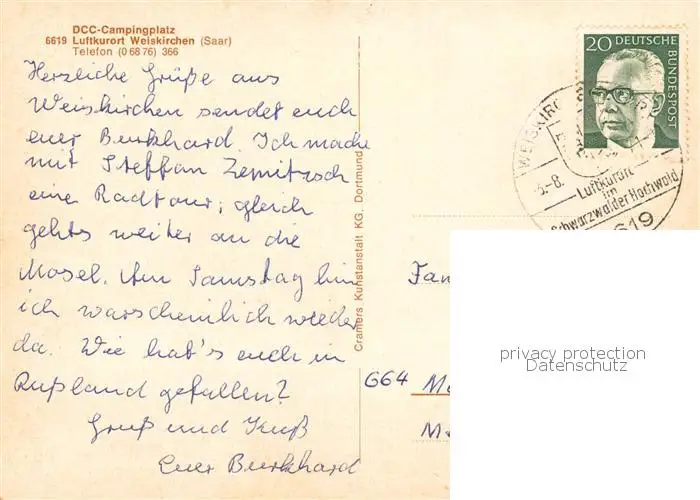 DCC-Campingplatz
6619 Luftkurort Weiskirchen (Saar)
Telefon (0 68 76) 366
Herzliche Grüße aus
Weiskirchen sendet euch
euer Burkhard. Ich mache
mit Steffan Zemitzsch
eine Radtour; gleich
gehts weiter an die
Mosel. Am Samstag bin
ich warscheinlich wieder
da. Wie hat's euch in
Rußland gefallen?
Gruß und Kuß
Euer Burkhard
Cramers Kunstanstalt KG, Dortmund
20 DEUTSCHE BUNDESPOST
WEISKIRC
-8.
Luftkurort
im
Schwarzwälder Hochwald
6619
Fam
664 Me
Me
privacy protection
Datenschutz